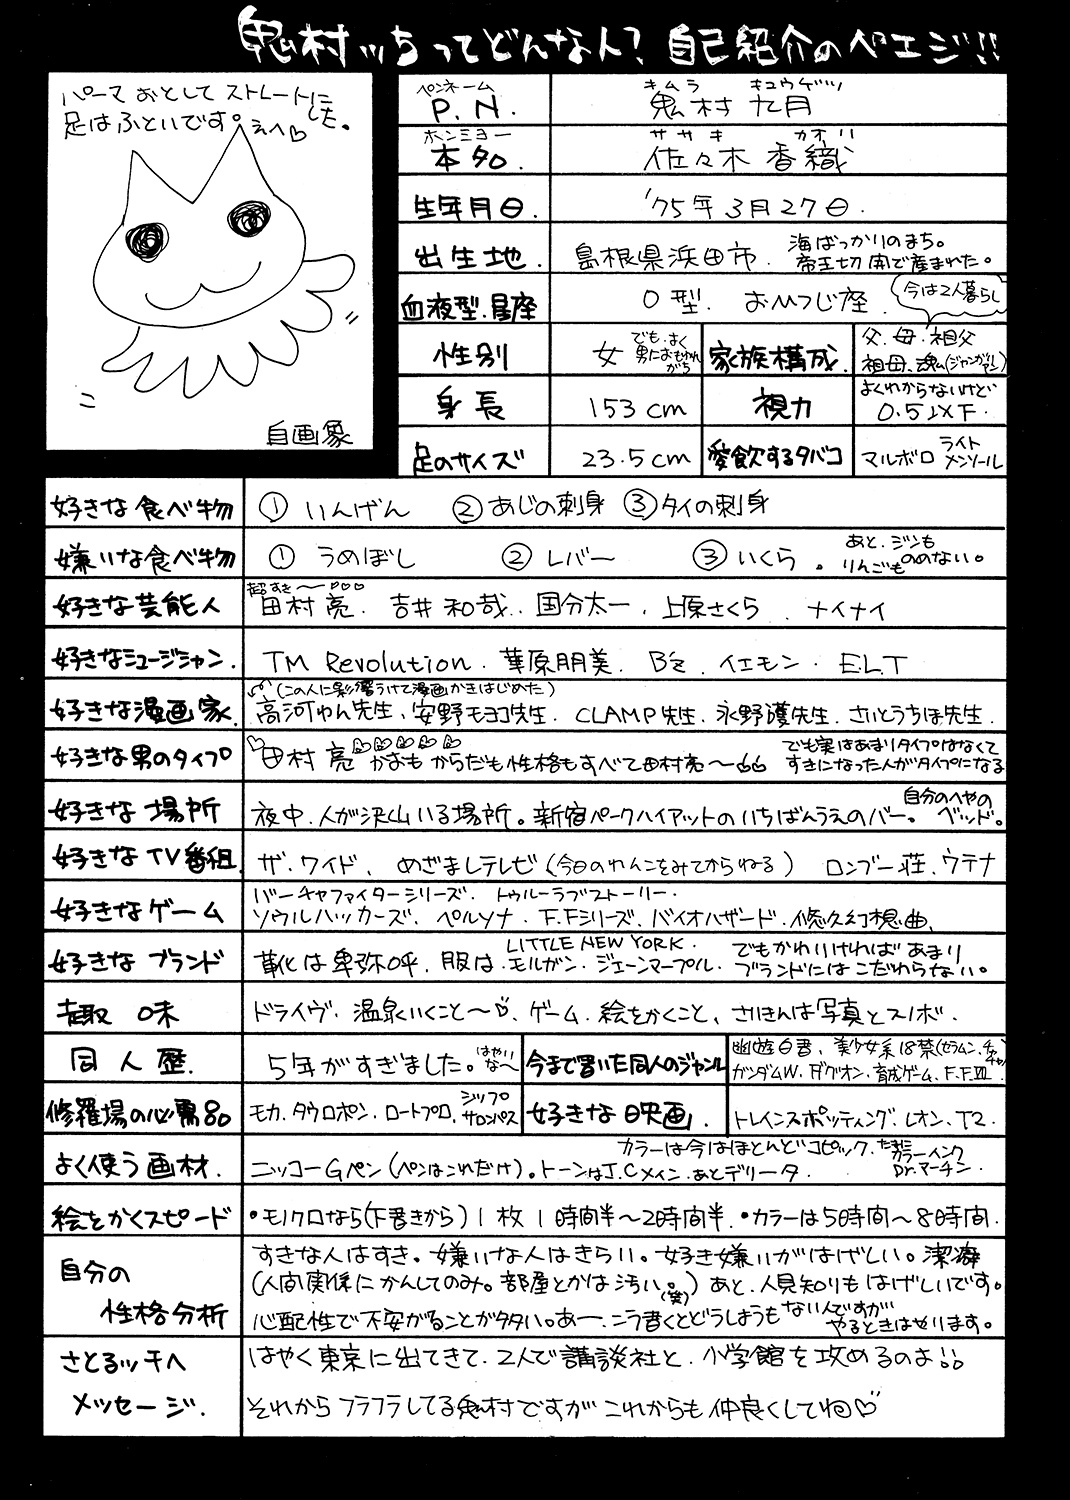 鬼村ッちってどんな人? 自己紹介のペエジ!!
パーマおとしてストレートにした。
足はふといです。えへ♡
自画象
ペンネーム
P.N.
キムラ キュウゲツ
鬼村 九月
ホンミョー
本名
ササキ カオリ
佐々木 香織
生年月日.
'75年3月27日.
出生地.
島根県浜田市.
海ばっかりのまち。
帝王切開で産まれた。
血液型.星座
O型. おひつじ座
今は2人暮らし
性別
女
でも、よく
男におもわれ
がち
家族構成.
父.母.祖父
祖母、魂(ジャンガリアン)
身長
153cm
視力
よくわからないけど
0.5以下.
足のサイズ
23.5cm
愛飲するタバコ
マルボロ ライト
メンソール
好きな食べ物
①いんげん ②あじの刺身 ③タイの刺身
嫌いな食べ物
①うめぼし ②レバー ③いくら.
あと、ジンも
りんごものめない。
好きな芸能人
超すき〜♡♡♡
田村亮. 吉井和哉. 国分太一. 上原さくら ナイナイ
好きなミュージシャン.
TM Revolution. 華原朋美. B'z. イエモン. ELT
好きな漫画家.
(この人に影響うけて漫画かきはじめた)
高河ゆん先生、安野モヨコ先生. CLAMP先生. 永野護先生. さいとうちほ先生.
好きな男のタイプ
♡田村亮♡♡♡♡♡ かおもからだも性格もすべて田村亮〜
でも実はあまりタイプはなくて
すきになった人がタイプになる
好きな場所
夜中.人が沢山いる場所。新宿パークハイアットのいちばんうえのバー。
自分のへやの
ベッド。
好きなTV番組.
ザ.ワイド、めざましテレビ(今日のわんこをみてからねる) ロンブー荘.ウテナ
好きなゲーム
バーチャファイターシリーズ. トゥルーラブストーリー.
ソウルハッカーズ、ペルソナ.F.Fシリーズ、バイオハザード.悠久幻想曲.
好きなブランド
LITTLE NEW YORK.
靴は卑弥呼.服は.モルガン.ジェーンマープル.
でもかわいければあまり
ブランドにはこだわらない。
趣味
ドライヴ. 温泉いくこと〜♡、ゲーム.絵をかくこと、さいきんは写真とスノボ.
同人歴.
5年がすぎました。はやいな〜
今まで書いた同人のジャンル
幽遊白書、美少女系18禁(セラムン.チャチャ)
ガンダムW.ダグオン.育成ゲーム.F.FⅦ
修羅場の必需品
モカ.タウロポン.ロートプロ.シップ
サロンパス
好きな映画.
トレインスポッティング.レオン.T2.
よく使う画材.
カラーは今はほとんどコピック.たまに
カラーインク
Dr.マーチン.
ニッコーGペン(ペンはこれだけ)。トーンはJ.Cメイン.あとデリータ.
絵をかくスピード
•モノクロなら(下書きから)1枚1時間半〜2時間半.•カラーは5時間〜8時間.
自分の
性格分析
すきな人はすき。嫌いな人はきらい。好き嫌いがはげしい。潔癖
(人間関係にかんしてのみ。部屋とかは汚い。(笑))あと、人見知りもはげしいです。
心配性で不安がることが多い。あー、こう書くとどうしようもないんですが
やるときはやります。
さとるッチへ
メッセージ.
はやく東京に出てきて.2人で講談社と.小学館を攻めるのよ!!
それからフラフラしてる鬼村ですがこれからも仲良くしてね♡